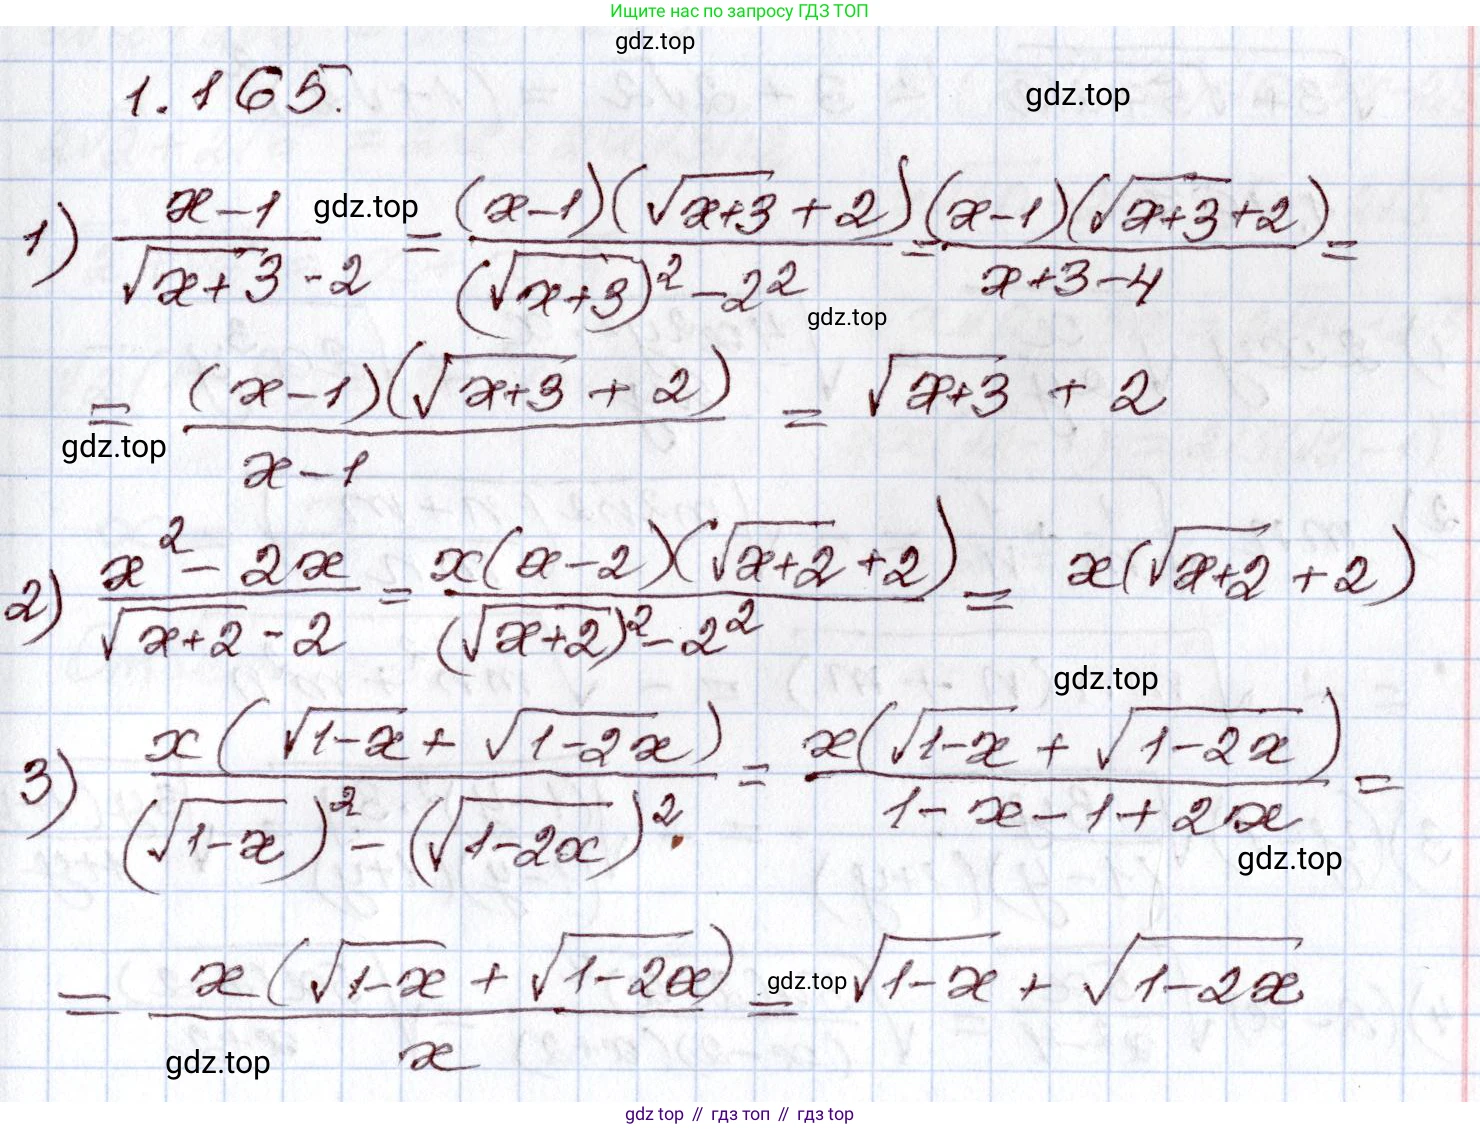 Ищите нас по запросу ГДЗ ТОП
gdz.top
1.165.
gdz.top
1) (x-1)/(√(x+3) - 2) = ((x-1)(√(x+3) + 2))/((√(x+3))² - 2²) = ((x-1)(√(x+3) + 2))/(x+3-4) =
gdz.top
gdz.top
= ((x-1)(√(x+3) + 2))/(x-1) = √(x+3) + 2
gdz.top
2) (x² - 2x)/(√(x+2) - 2) = (x(x-2)(√(x+2) + 2))/((√(x+2))² - 2²) = x(√(x+2) + 2)
gdz.top
3) (x(√(1-x) + √(1-2x)))/((√(1-x))² - (√(1-2x))²) = (x(√(1-x) + √(1-2x)))/(1-x-1+2x) =
gdz.top
= (x(√(1-x) + √(1-2x)))/x = √(1-x) + √(1-2x)
gdz.top
gdz.top
gdz.top // гдз топ // gdz top